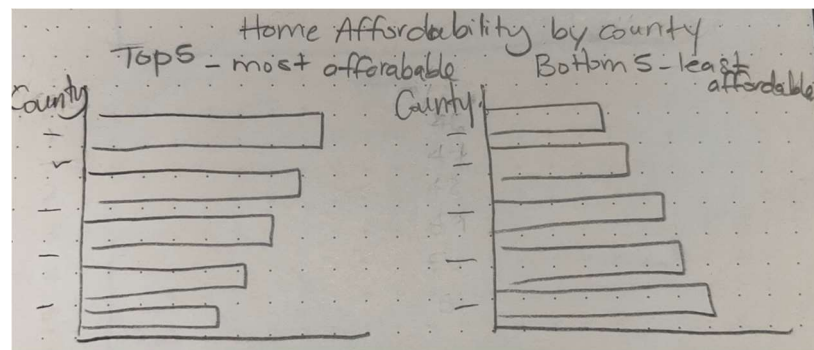 Home Affordability by county
Top 5 - most afforabable
Bottom 5 - least affordable
County
County